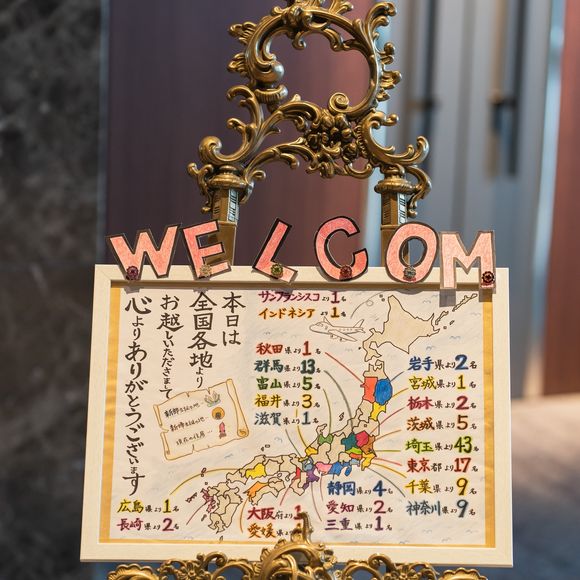 WELCOM
本日は
全国各地より
お越しいただきまして
心よりありがとうございます
サンフランシスコより1名
インドネシアより1名
秋田県より1名
群馬県より13名
富山県より5名
福井県より3名
滋賀県より1名
岩手県より2名
宮城県より1名
栃木県より2名
茨城県より5名
埼玉県より43名
東京都より17名
千葉県より9名
神奈川県より9名
新郎出身の地
新婦出身の地
現在の住居
静岡県より4名
愛知県より2名
三重県より1名
大阪府より1
愛媛県
広島県より1名
長崎県より2名